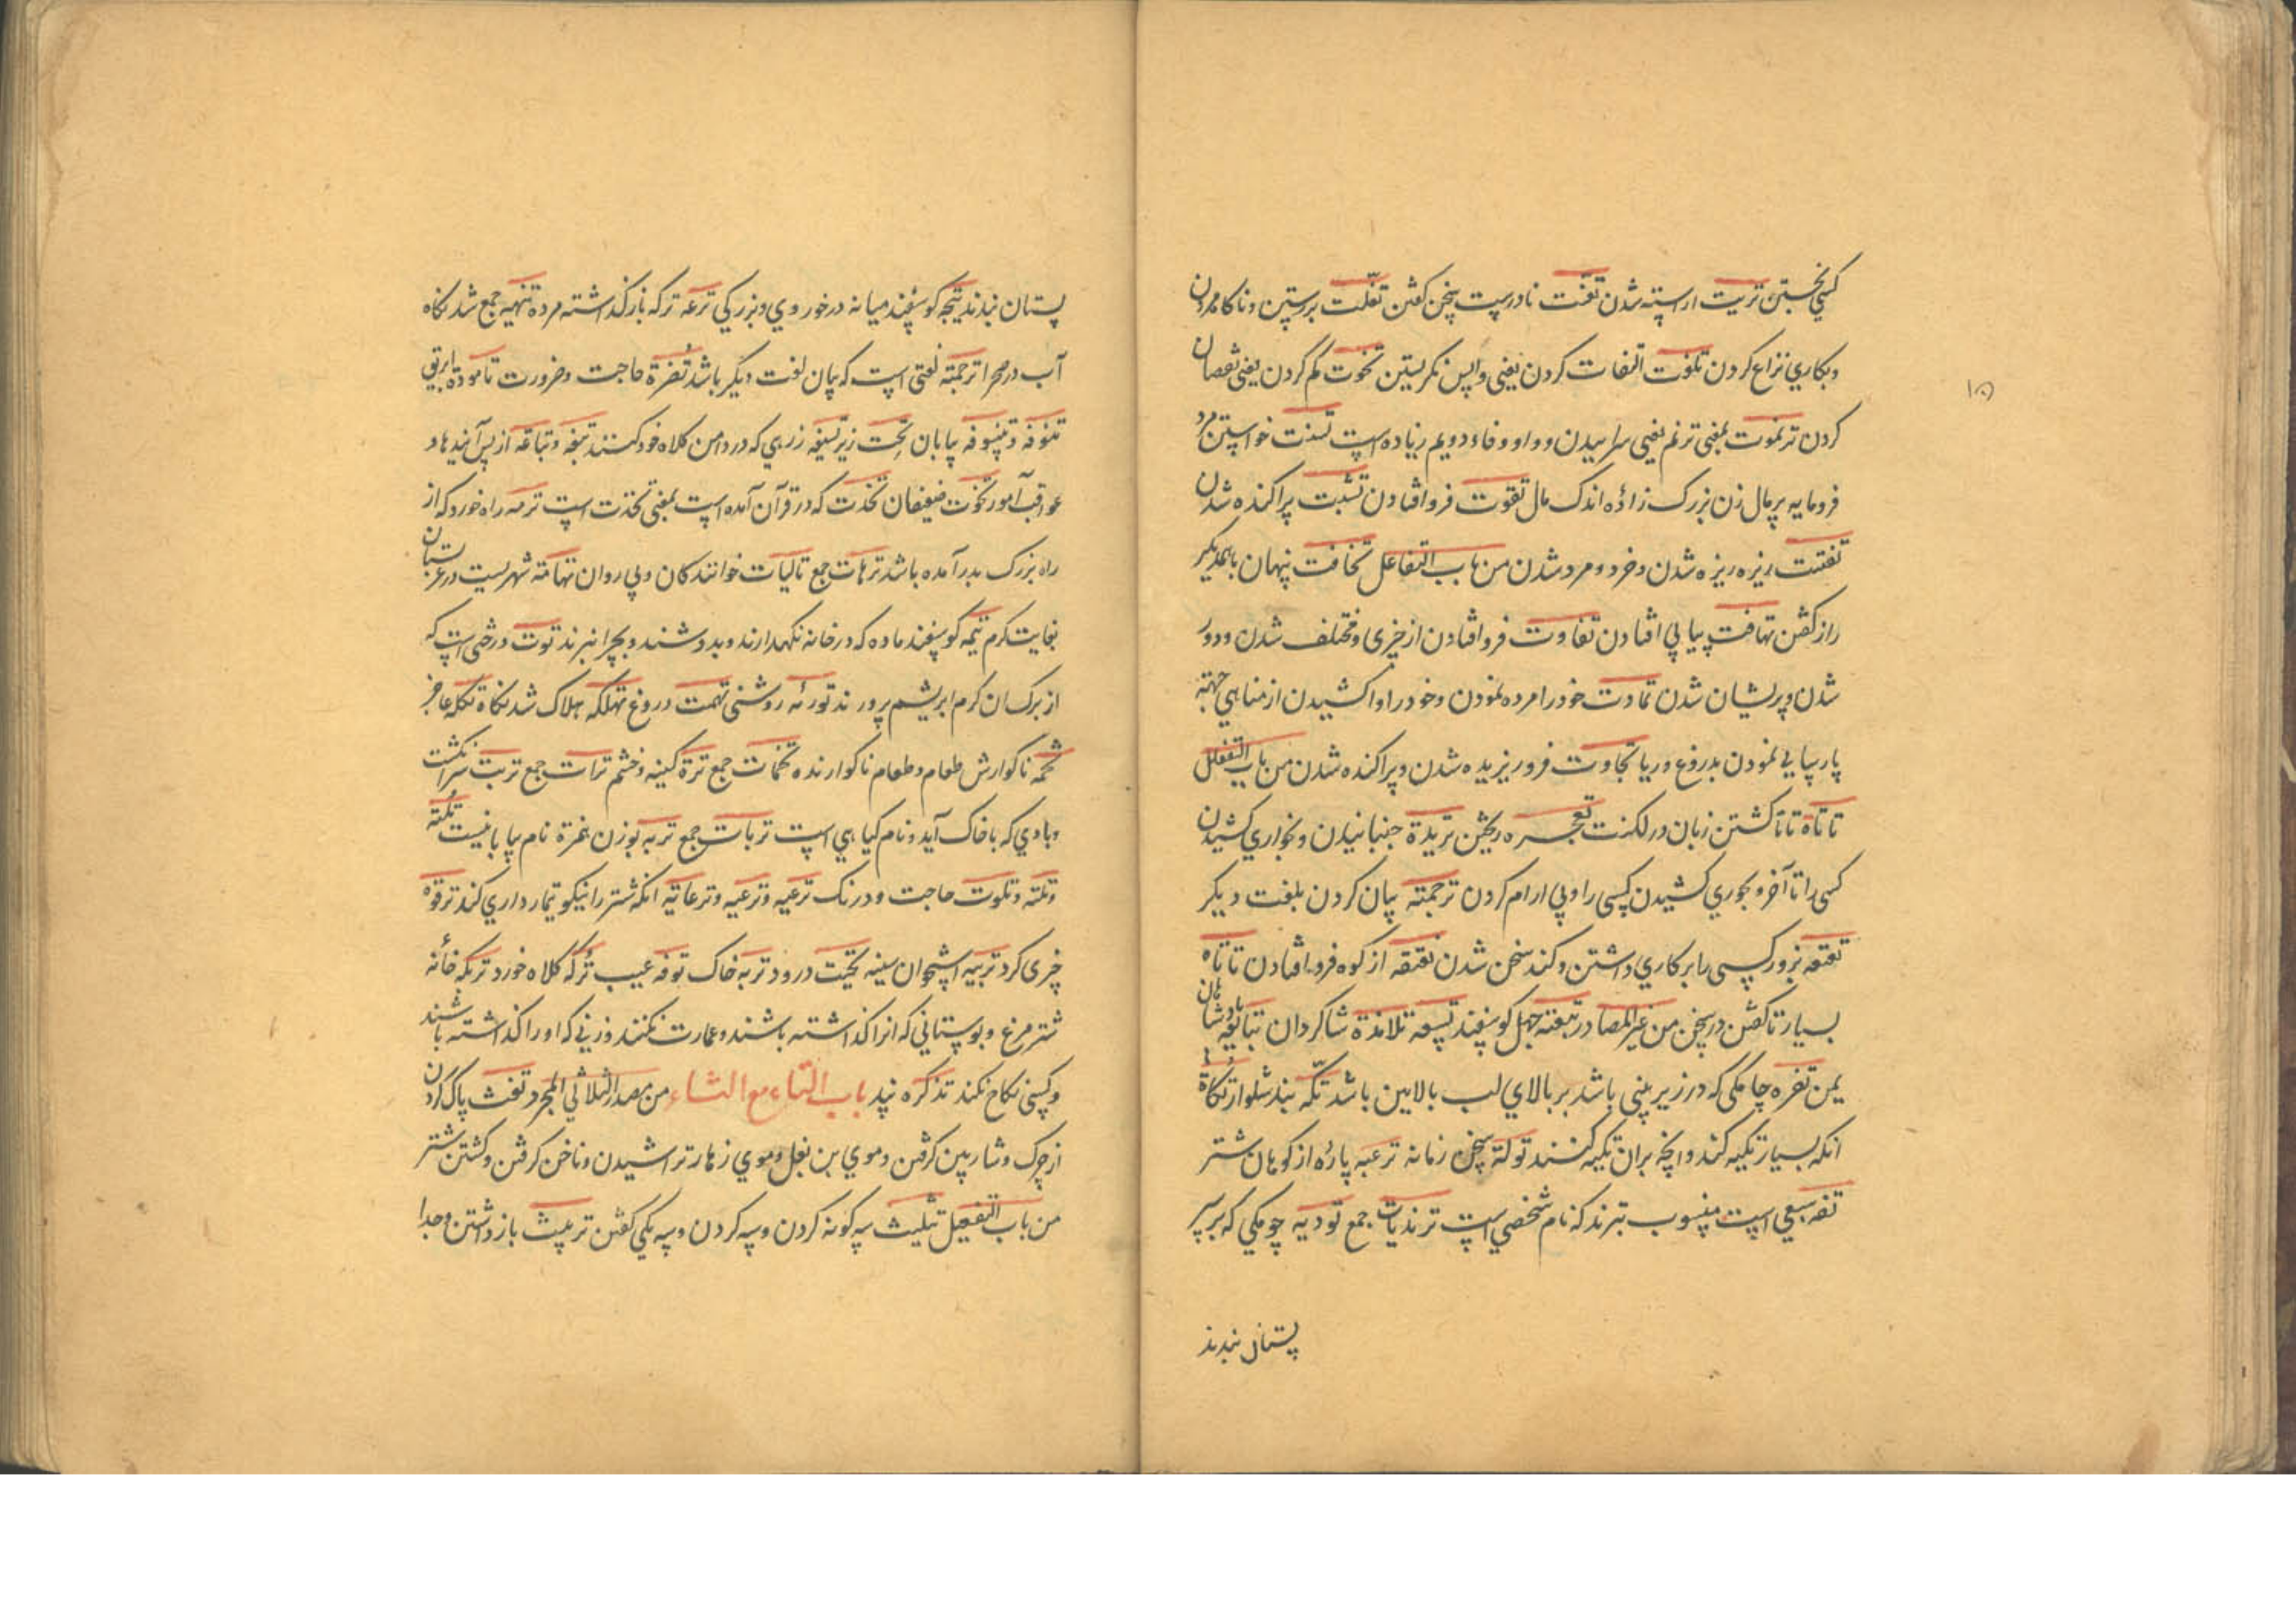 کسی نخستین تزیت اراسته شدن تعنت نادرست سخن کفتن تفلت برستین و ناکاه مردن
و بکاری نزاع کردن تلفوت التفات کردن یعنی واپس نکریستین تخوت کم کردن یعنی نقصان
کردن ترنموت بمعنی ترنم یعنی سراییدن و واو و فاء دویم زیاده است تسنت خواستن مرد
فرومایه پر مال زن بزرک زاده اندک مال تقوت فرو افتادن تشتت پراکنده شدن
تفتت ریزه ریزه شدن و خرد و مرد شدن من باب التفاعل تخافت پنهان باهمدیکر
راز کفتن تهافت پیاپی افتادن تفاوت فرو افتادن از چیزی و مختلف شدن و دور
شدن و پریشان شدن تماوت خود را مرده نمودن و خود را وا کشیدن از مناهی جهته
پارسایی نمودن بدروغ و ریا تجاوت فرو ریزیده شدن و پراکنده شدن من باب التفعلل
تاتاة تا تا کشتن زبان در لکنت تعجره ریختن تریدة جنبانیدن و بخواری کشیدن
کسی را تا آخر و بجوری کشیدن کسی را و بی ارام کردن ترجمته بیان کردن بلغت دیکر
تعتعه بزور کسی را بر کاری داشتن و کند سخن شدن تقتقه از کوه فرو افتادن تاتاه
بسیار تا کفتن در سخن من غیر المصادر تیعته چهل کوسفند تسعه تلامذة شاکردان تبابعه پادشاهان
یمن تفره چاهکی که در زیر بینی باشد بر بالای لب بالایین باشد تکه بند شلوار تکاة
انکه بسیار تکیه کند و انچه بران تکیه کنند تولة سخن زمانه ترعبه پاره از کوهان شتر
تفه سبعی است منسوب تبرند که نام شخصی است ترندیات جمع تودیه چوبکی که بر سر
پستان بندند
پستان بندند تیجه کوسفند میانه در خوردی و بزرکی ترعه ترکه باز کذاشته مرده تنهیه جمع شد نکاه
آب در صحرا ترجمته لغتی است که بیان لغت دیکر باشد تضرة حاجت و ضرورت تاموده ابریق
تنوفه و تنسوفه بیابان تحت زیر تسیغه زرهی که در دامن کلاه خود کنند تبعه و تباعه از پس آیندها و
عواقب آمور تخوت ضعیفان تخذت که در قرآن آمده است بمعنی تخذت است ترمه راه خورد که از
راه بزرک بدر آمده باشد ترهات جمع تالیات خوانندکان و پی روان تهامة شهریست در عربستان
بغایت کرم تیمه کوسفند ماده که در خانه نکهدارند و بدوشند و بچرا نبرند توت درختی است که
از برک ان کرم ابریشم پرورند توریه روشنی تهمت دروغ تهلکه هلاک شد نکاه تکله عاجز
تخمه ناکوارش طعام و طعام ناکوارنده تخمات جمع ترة کینه و خشم ترات جمع تربت سر انکشت
و بادی که با خاک آید و نام کیاهی است تربات جمع تربه بوزن غمزة نام بیابانیست تلنه
و تلنه و تلوت حاجت و درنک ترعیه و ترعیه و ترعایه انکه شتر را نیکو تیمار داری کند ترقوه
چری کرد تریبه استخوان سینه تحیت درود تربه خاک توفه عیب ترکه کلاه خورد تریکه خانه
شتر مرغ و بوستانی که انرا کذاشته باشند و عمارت نکنند و زنی که او را کذاشته باشند
و کسی نکاح نکند تذکره پند باب التاء مع الثاء من مصدر الثلاثی المجرد تفث پاک کردن
از چرک و شاربین کرفتن و موی بن بغل و موی زهار تراشیدن و ناخن کرفتن و کشتن شتر
من باب التفعیل تثلیث سه کونه کردن و سه کردن و سه یکی کفتن تربیث باز داشتن و جدا